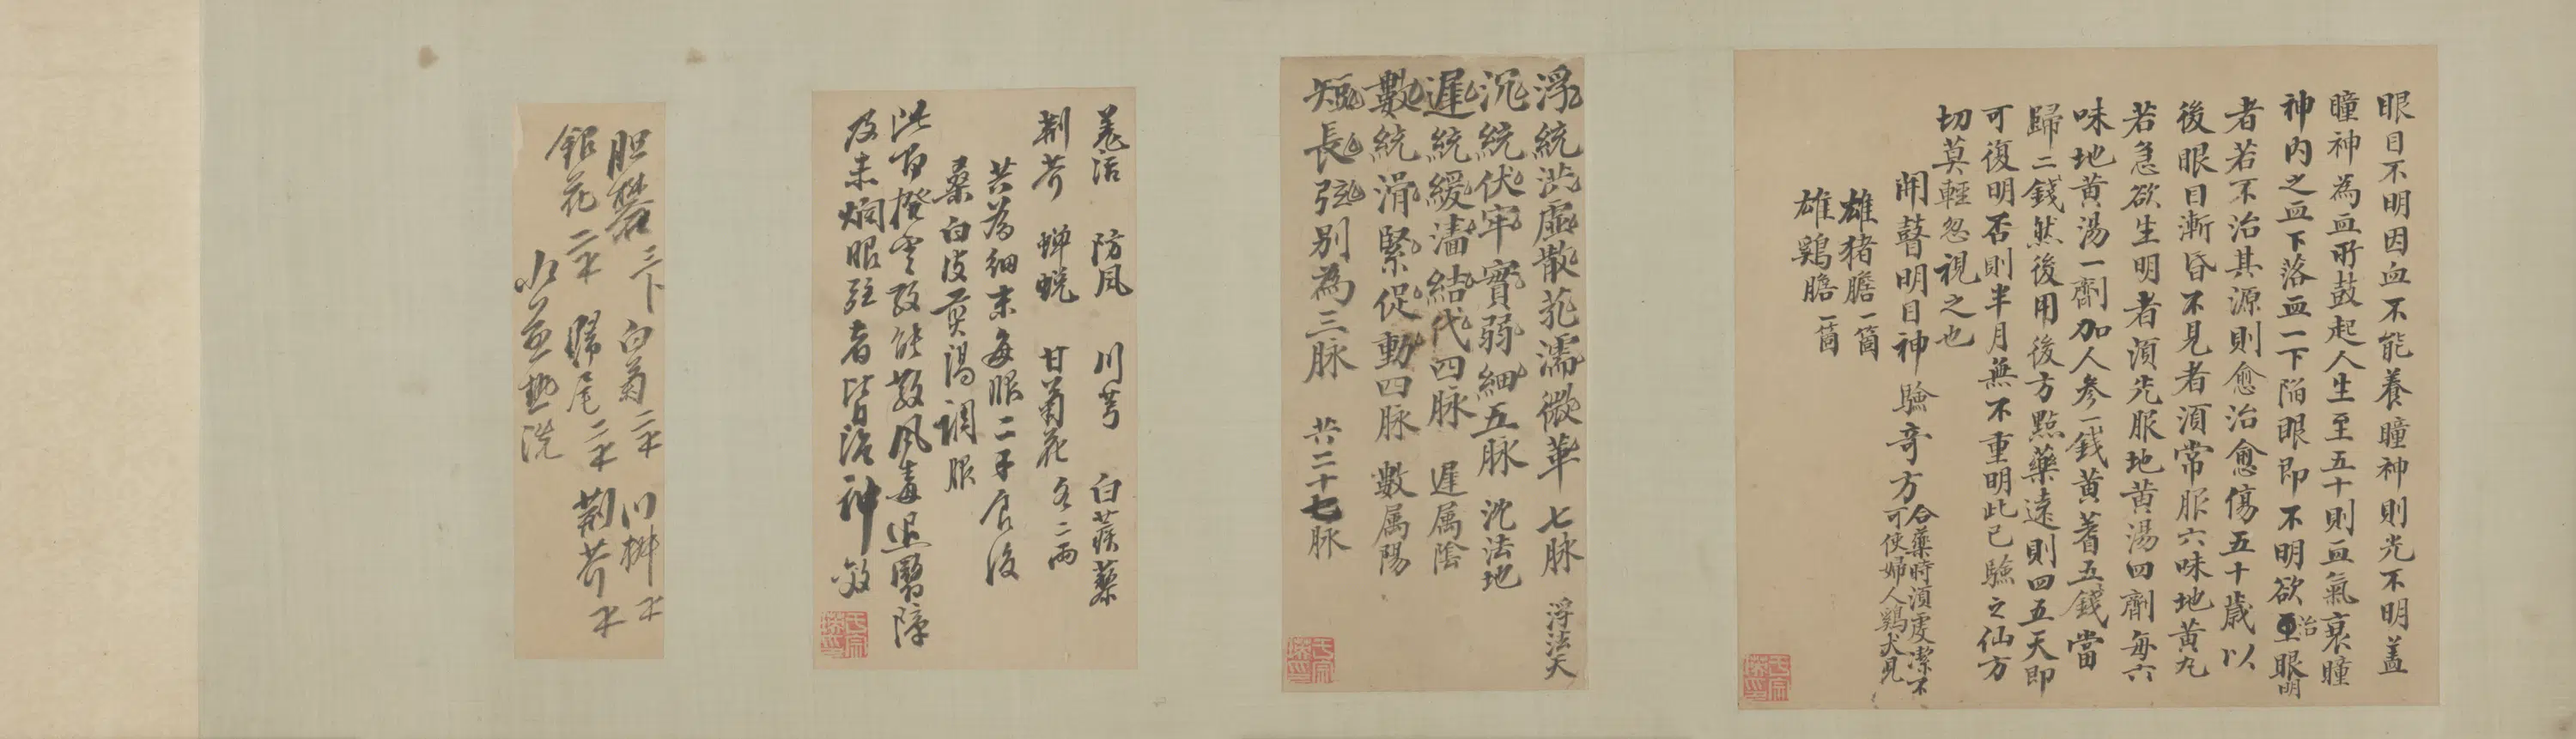 眼目不明因血不能養瞳神則光不明蓋
瞳神為血所鼓起人生至五十則血氣衰瞳
神內之血下落血一下陷眼即不明欲治眼明
者若不治其源則愈治愈傷五十歲以
後眼目漸昏不見者須常服六味地黃丸
若急欲生明者須先服地黃湯四劑每六
味地黃湯一劑加人參一錢黃蓍五錢當
歸二錢然後用後方點藥遠則四五天即
可復明否則半月無不重明此已驗之仙方
切莫輕忽視之也
開瞽明目神驗奇方
合藥時須虔潔不
可使婦人鷄犬見
雄猪膽一箇
雄鷄膽一箇
浮統洪虛散芤濡微革七脉 浮法天
沉統伏牢實弱細五脉 沈法地
遲統緩濇結代四脉 遲属陰
數統滑緊促動四脉 數属陽
短長弦别為三脉 共二十七脉
羗活 防風 川芎 白蒺藜
荆芥 蟬蜕 甘菊花各二兩
共為細末每服二子食後
桑白皮煎湯調服
此百撥雲散能散風毒退翳障
及赤爛眼弦者皆治神效
胆礬三卜 白菊二子 川椒子
銀花二子 歸尾二子 荆芥子
水煎熱洗